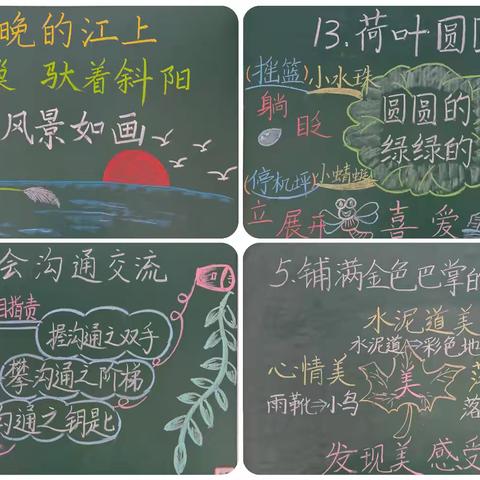 晚的江上
巢 驮着斜阳
风景如画
13.荷叶圆
(摇篮)小水珠
躺
眨
圆圆的
绿绿的
(停机坪)小蜻蜓
立 展开
喜爱
会沟通交流
相指责
握沟通之双手
攀沟通之阶梯
沟通之钥匙
5.铺满金色巴掌的
水泥道美
水泥道⇒彩色地
心情美
美
雨靴⇒小鸟
落
发现美 感受